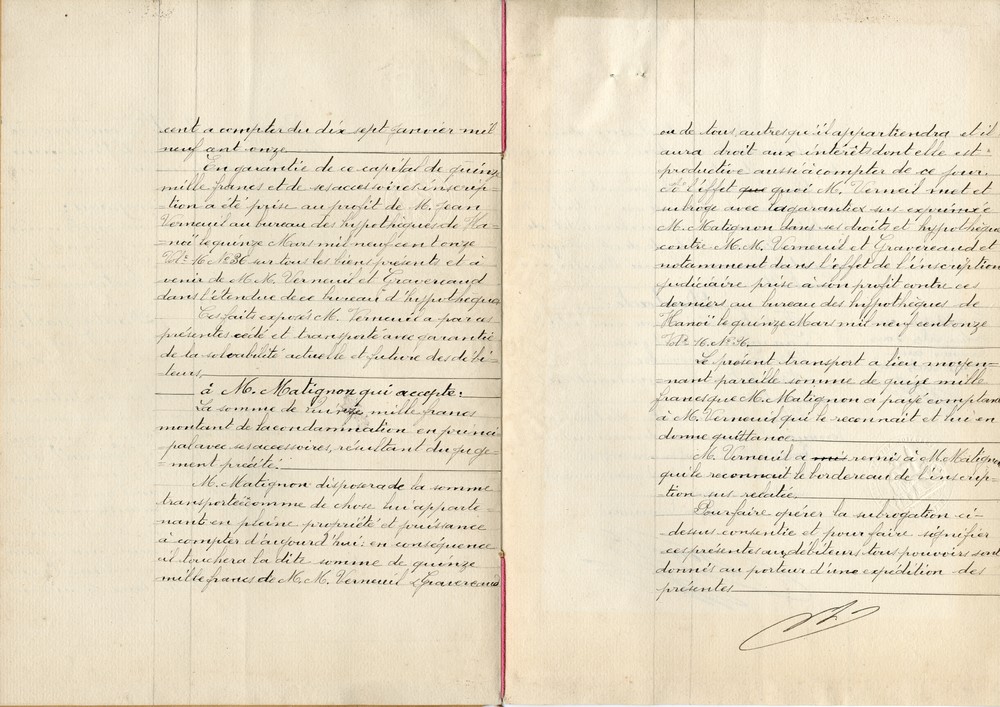 cent a compter du dix sept janvier mil
neuf cent onze
En garantie de ce capital de quinze
mille francs et de ses accessoires inscrip-
=tion a été prise au profit de M. Jean
Verneuil au bureau des hypothèques de Ha-
=noï le quinze Mars mil neuf cent onze
Vol: 16 No 36 sur tous les biens présents et à
venir de M.M. Verneuil et Gravereaud
dans l'étendue de ce bureau d'hypothèque
Ces faits exposés M. Verneuil a par ces
présentes cédé et transporté avec garantie
de la solvabilité actuelle et future des débi-
teurs,
à M. Matignon qui accepte:
La somme de Quinze mille francs
montant de la condamnation en princi
pal avec ses accessoires, résultant du juge-
=ment précité.
M. Matignon disposera de la somme
transportée comme de chose lui apparte-
=nant en pleine propriété et jouissance
à compter d'aujourd'hui: en conséquence
il touchera la dite somme de quinze
mille francs de M.M. Verneuil & Gravereaud
ou de tous autres qu'il appartiendra et il
aura droit aux intérêts dont elle est
productive aussi à compter de ce jour.
A l'effet que quoi M. Verneuil met et
subroge avec la garantie sus exprimée
M. Matignon dans ses droits et hypothèque
contre M.M. Verneuil et Gravereaud et
notamment dans l'effet de l'inscription
judiciaire prise à son profit contre ces
derniers au bureau des hypothèques de
Hanoï le quinze Mars mil neuf cent onze
Vol: 16. No 36.
Le présent transport a lieu moyen-
=nant pareille somme de quize mille
francs que M. Matignon a payé comptant
à M. Verneuil qui le reconnait et lui en
donne quittance.
M. Verneuil a mis remis à M. Matignon
qui le reconnait le bordereau de l'inscrip-
tion sus relatée.
Pour faire opérer la subrogation ci-
dessus consentie et pour faire signifier
ces présentes aux débiteurs, tous pouvoirs sont
donnés au porteur d'une expédition des
présentes